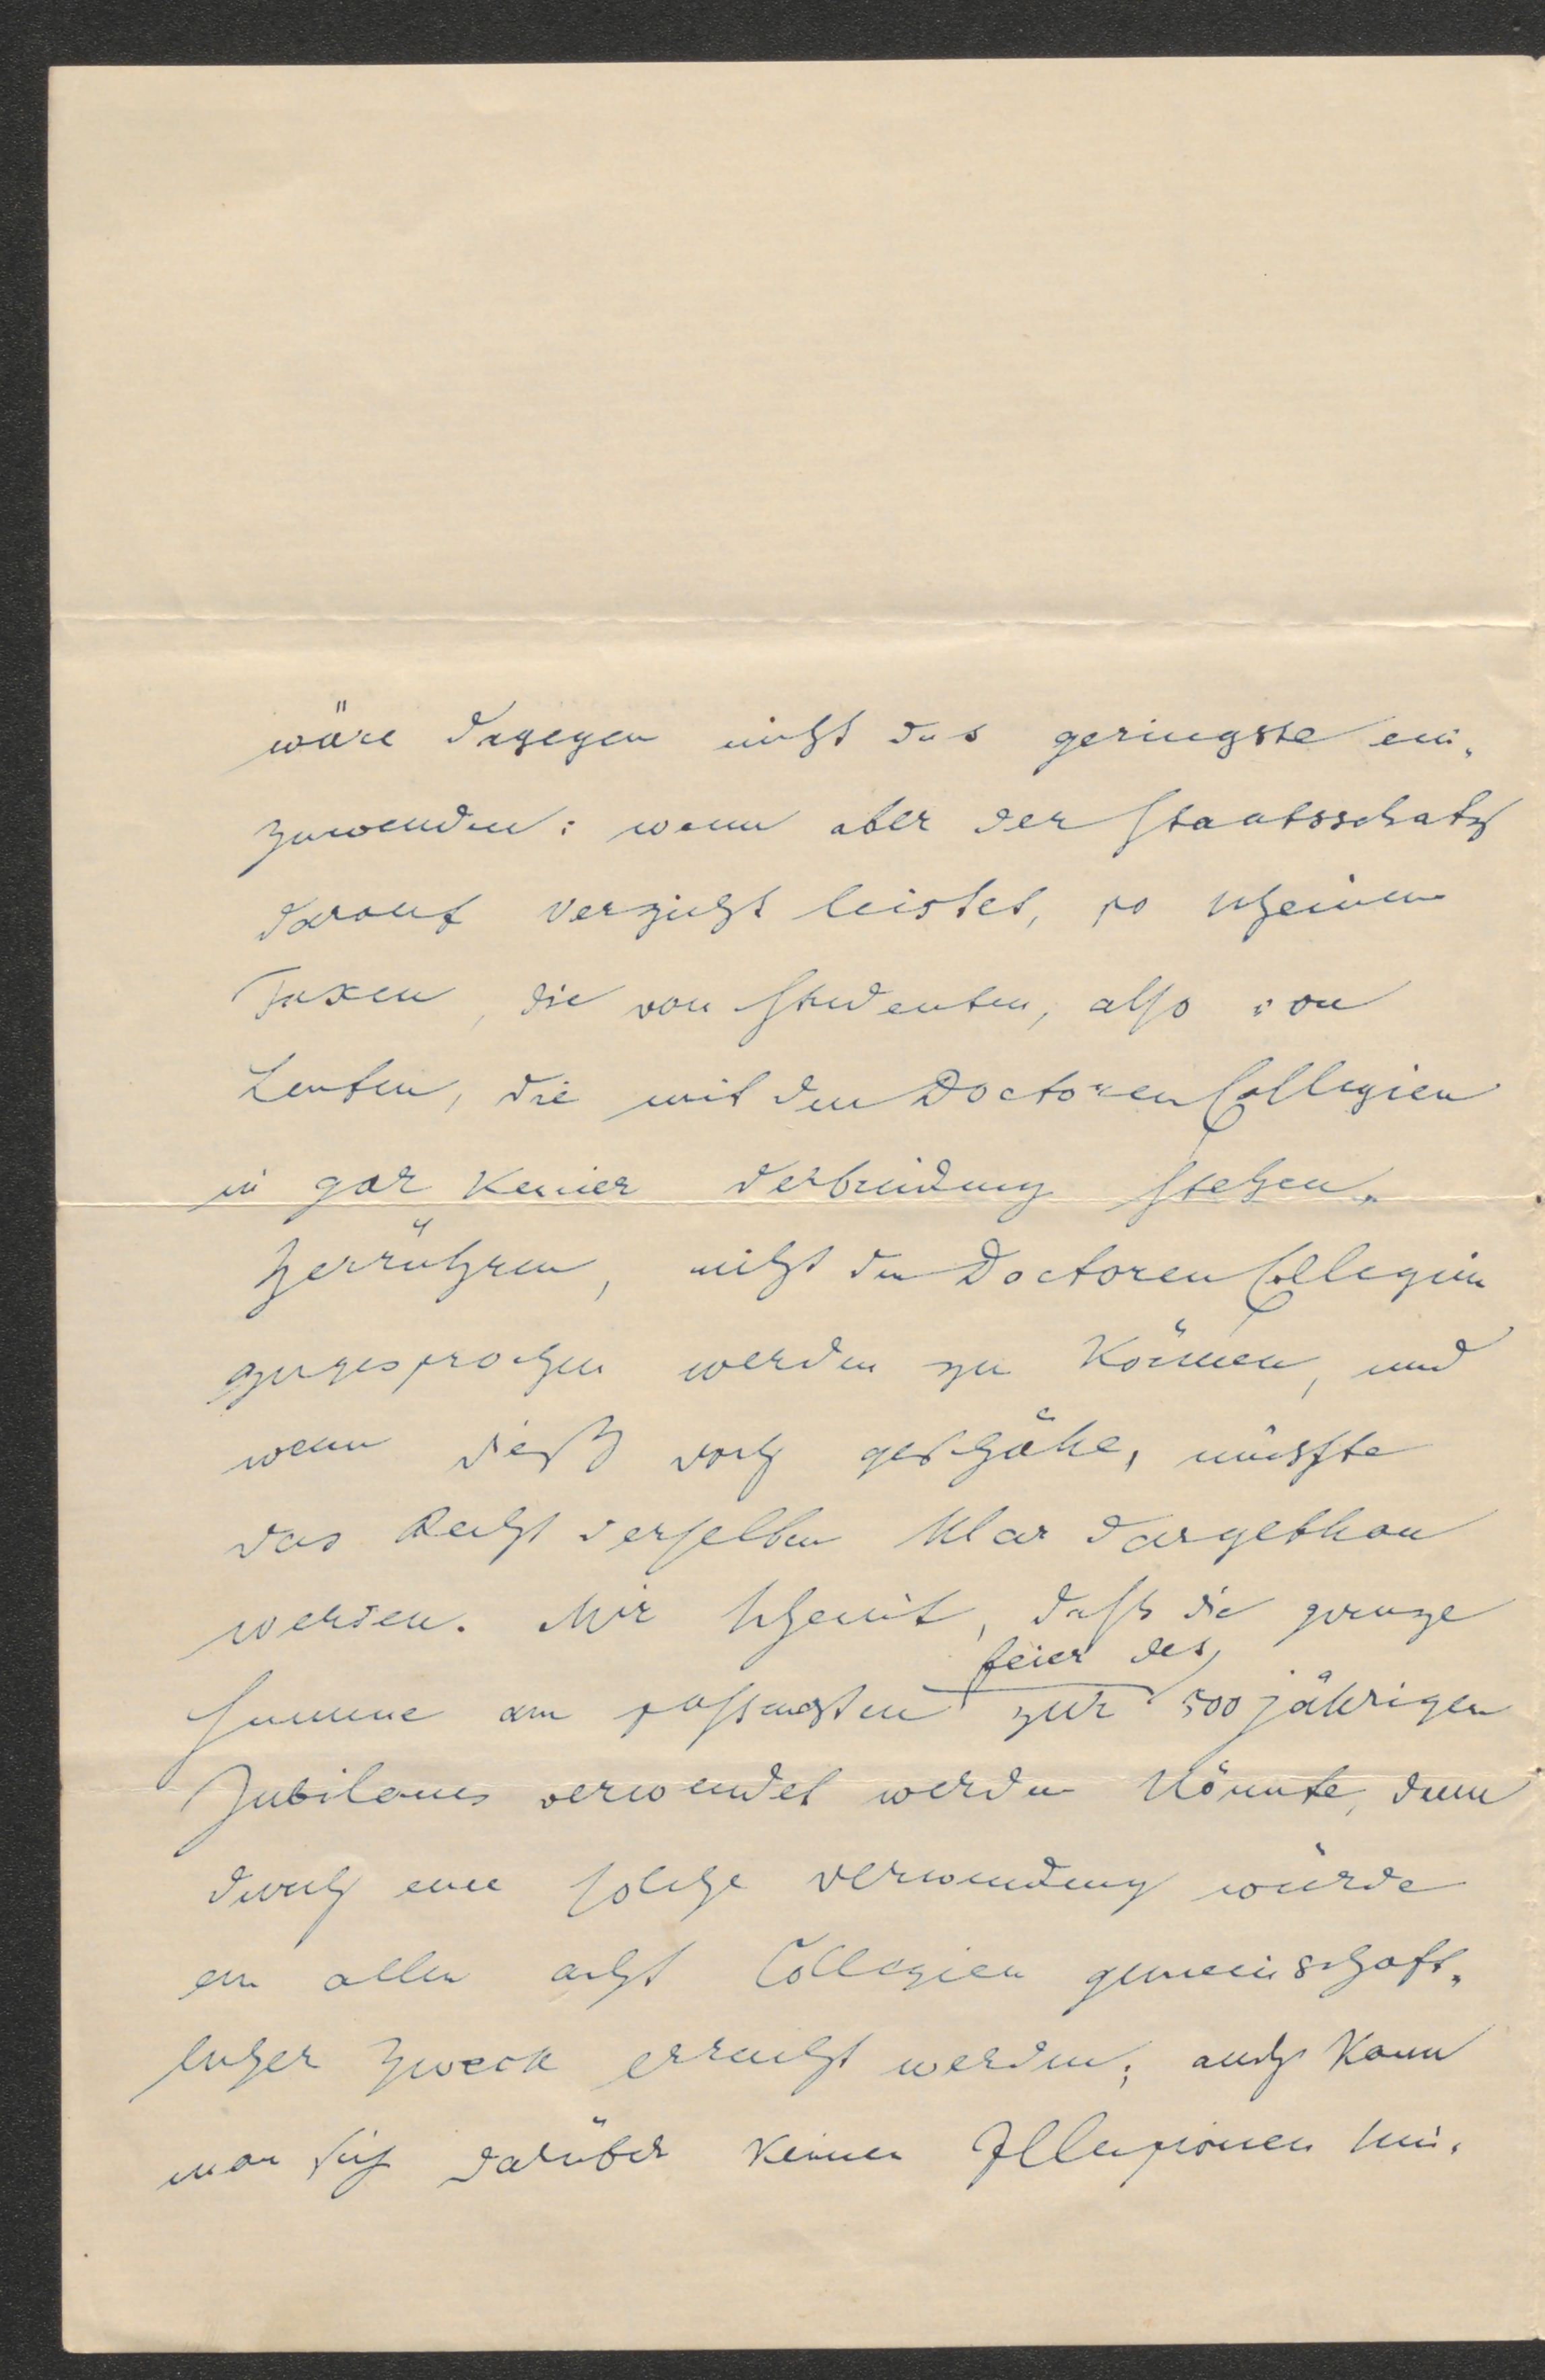 wäre dagegen nicht das geringste ein-
zuwenden: wenn aber der Staatsschatz
darauf Verzicht leistet, so scheinen
Taxen, die von Studenten, also von
Leuten, die mit den Doctoren Collegien
in gar keiner Verbindung stehen,
herrühren, nicht den Doctoren Collegien
zugesprochen werden zu können, und
wenn dieß doch geschähe, müsste
das Recht derselben klar dargethan
werden. Mir scheint, daß die ganze
feier des
Summe am passendsten zur 500 jährigen
Jubilaeums verwendet werden könnte, denn
durch eine solche Verwendung würde
ein allen acht Collegien gemeinschaft-
licher Zweck erreicht werden; auch kann
man sich darüber keinen Illusionen hin-